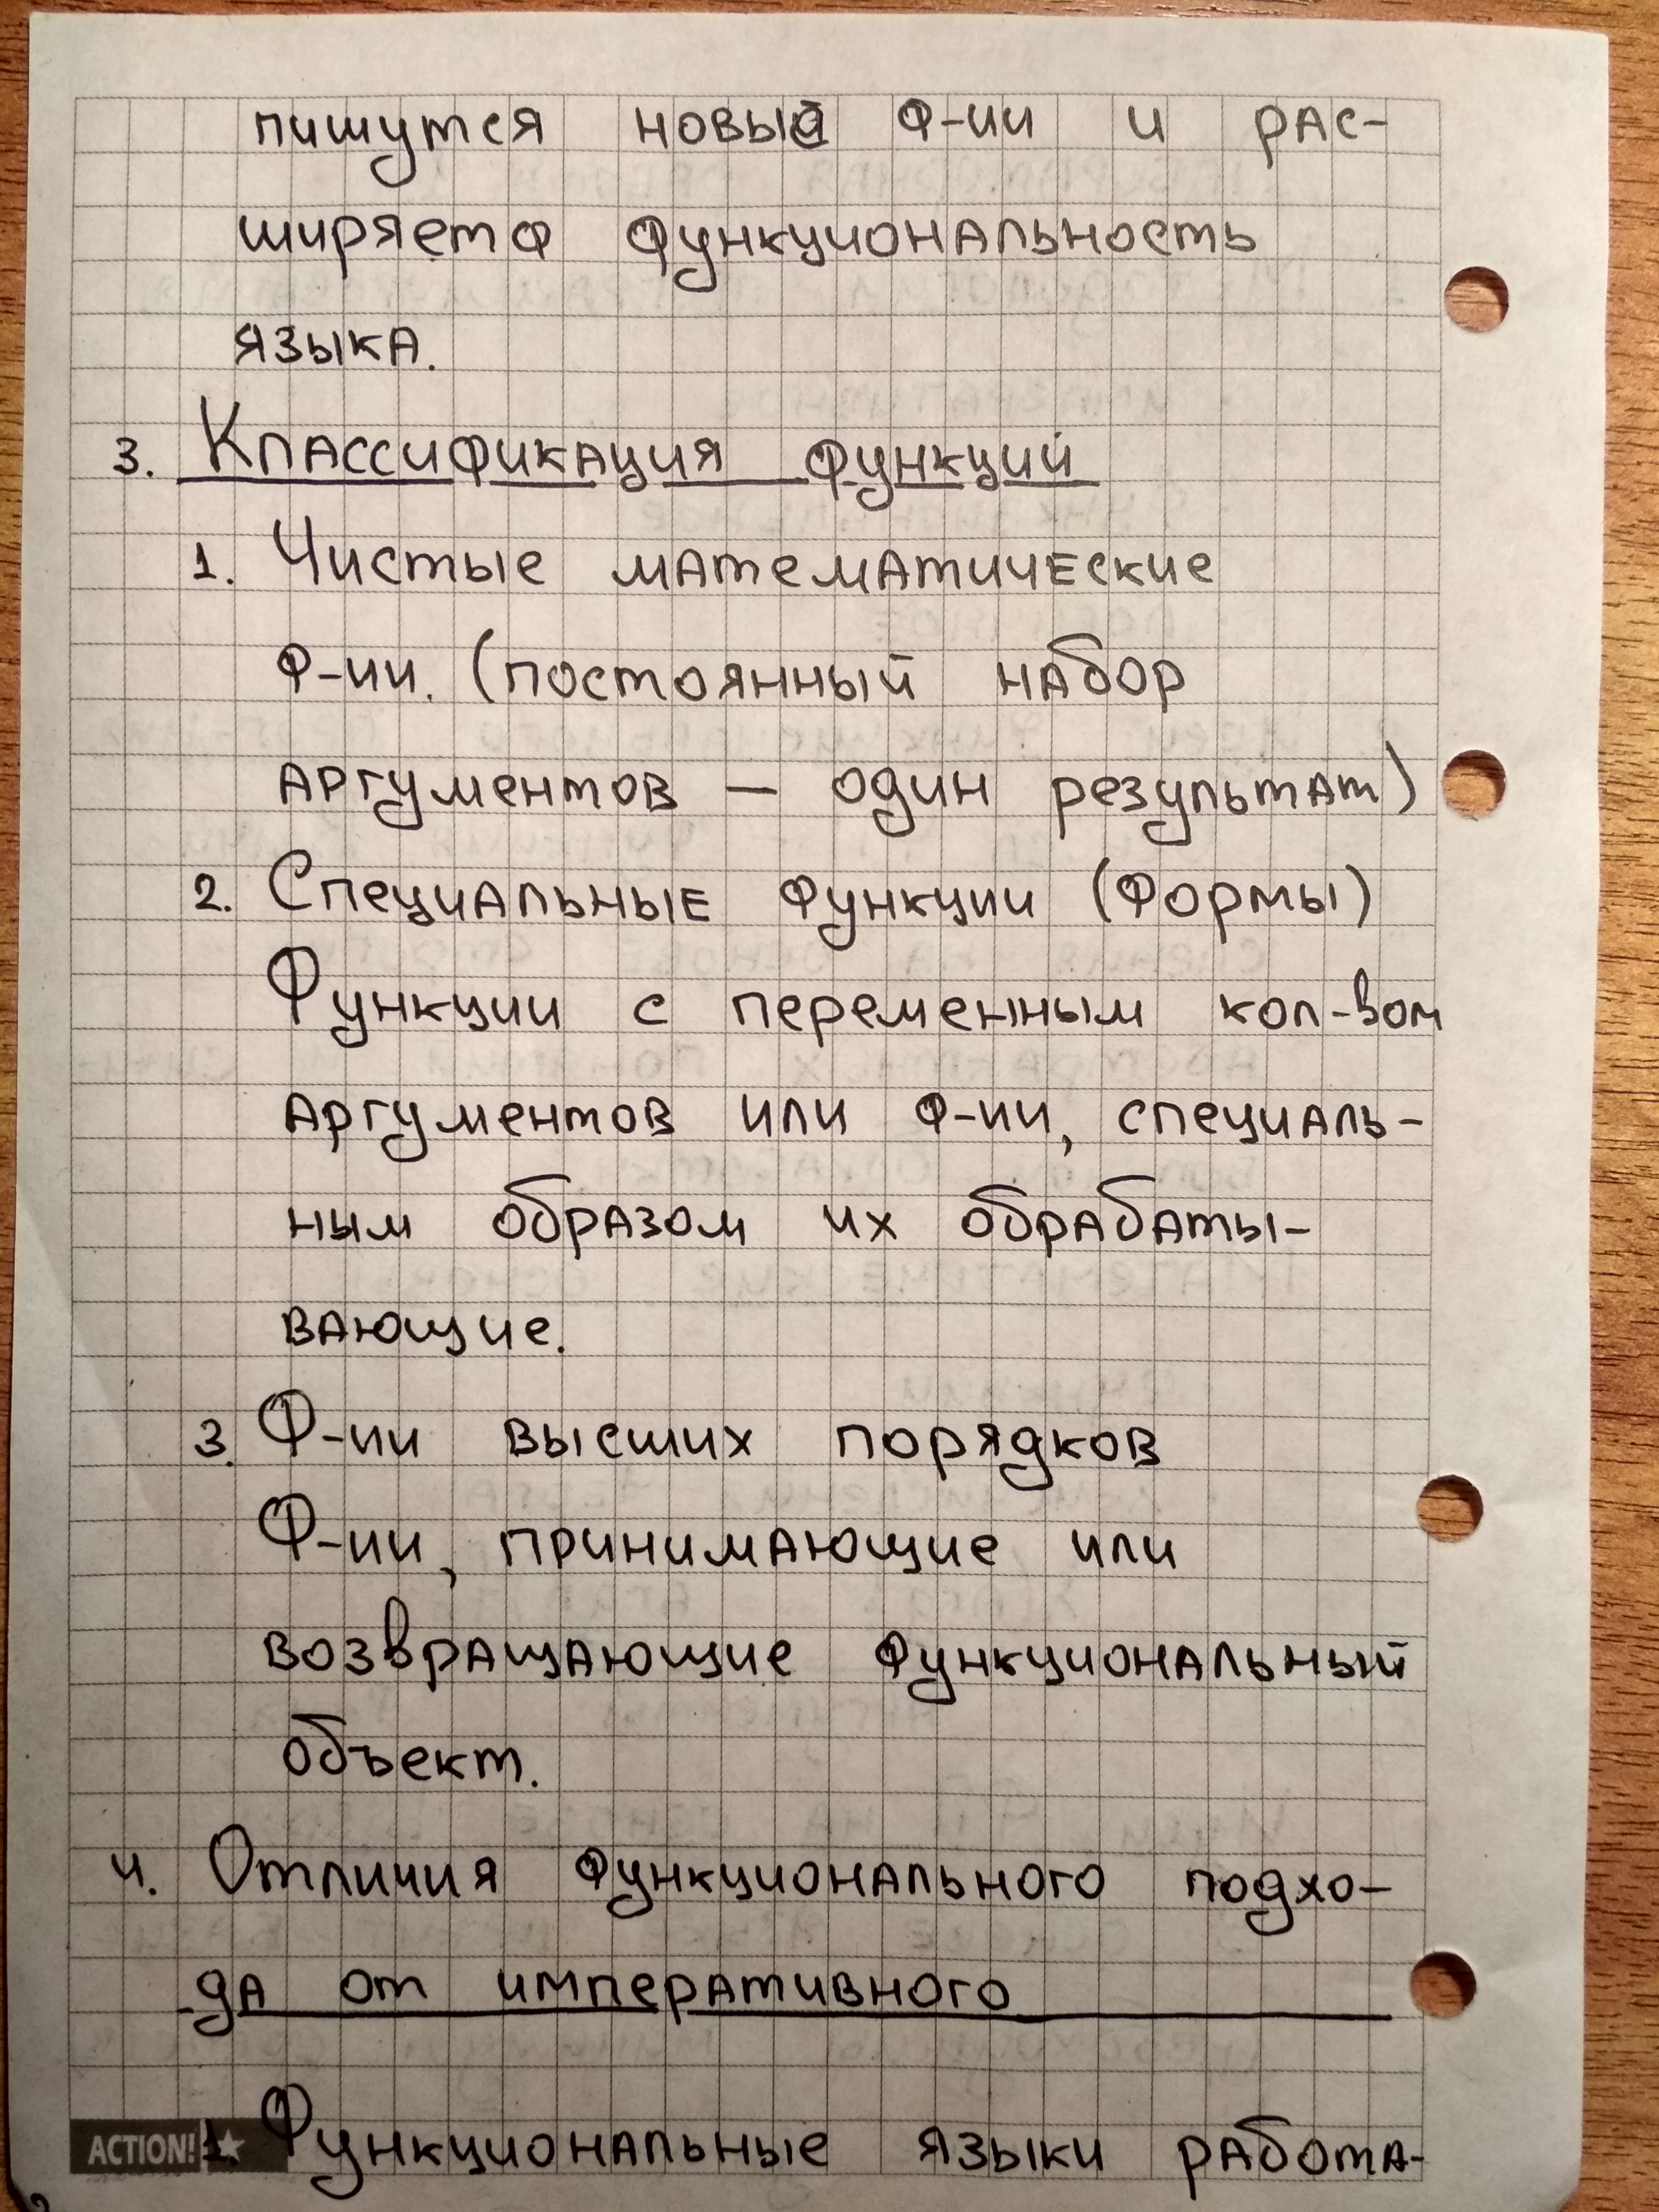 пишутся новые ф-ии и рас-
ширяется функциональность
языка.
3. Классификация функций
1. Чистые математические
ф-ии. (постоянный набор
аргументов — один результат)
2. Специальные функции (формы)
Функции с переменным кол-вом
аргументов или ф-ии, специаль-
ным образом их обрабаты-
вающие.
3. Ф-ии высших порядков
Ф-ии, принимающие или
возвращающие функциональный
объект.
4. Отличия функционального подхо-
да от императивного
1. Функциональные языки работа-
ACTION!